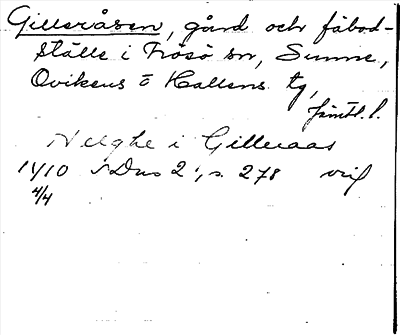 Gilleråsen, gård och fäbod-
ställe i Frösö sn, Sunne,
Ovikens o Hallens tg,
Jämtl. l.
Helghe i Gilleraas
1410 SDns 2, s. 278 orig
4/4